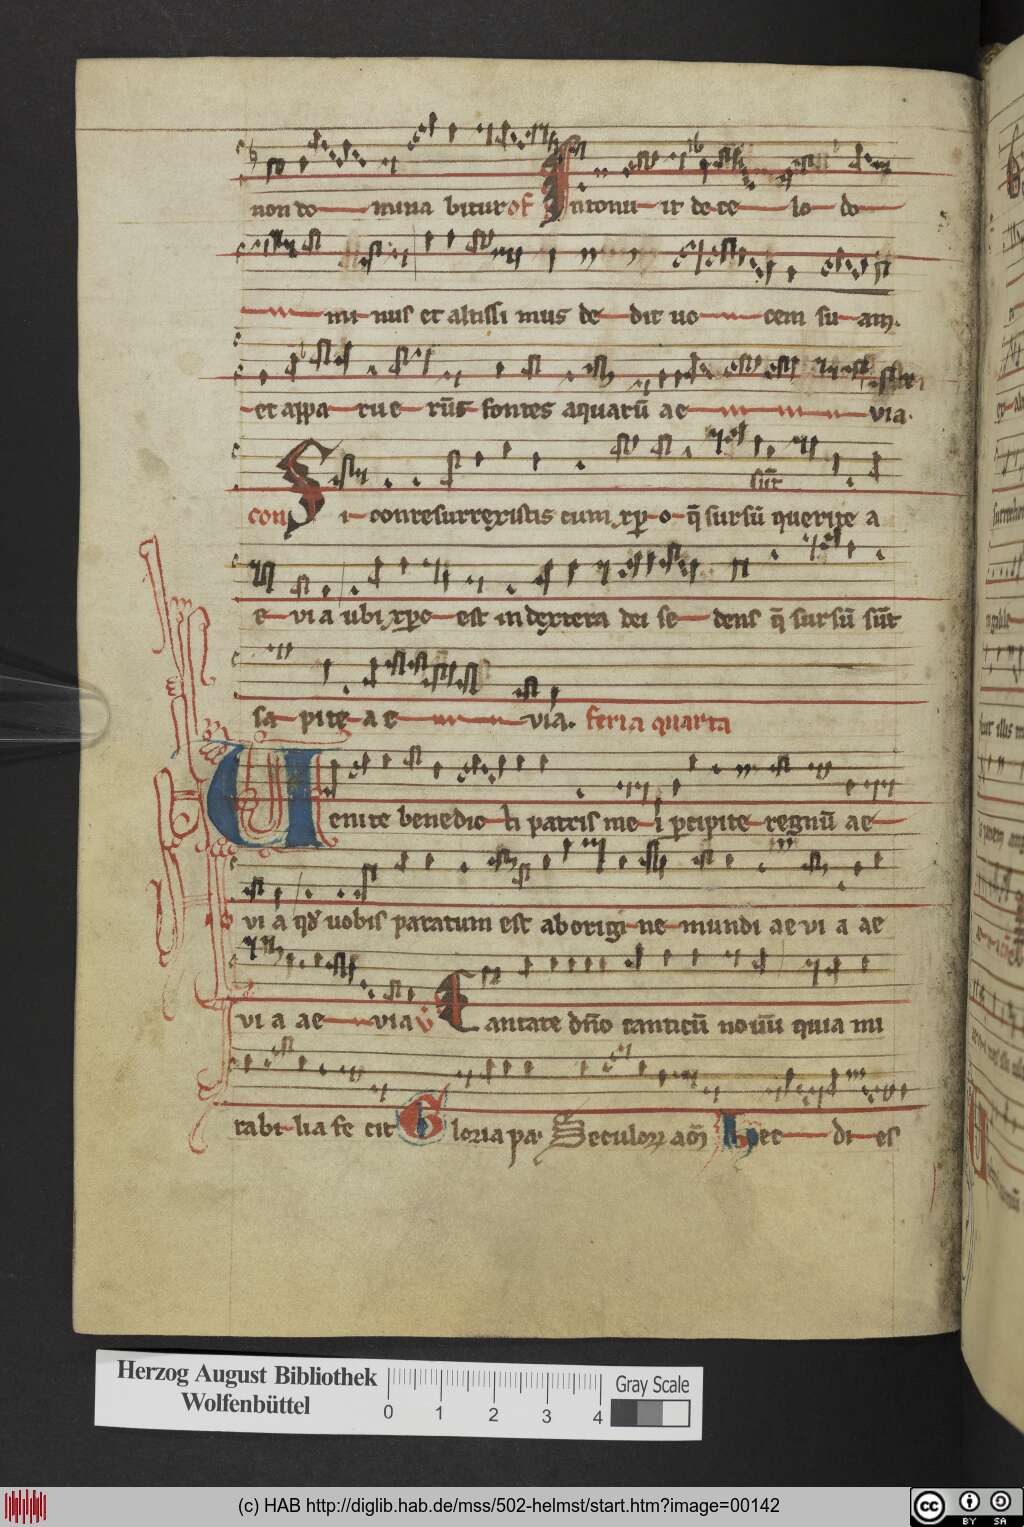 non do mina bitur of Intonu it de ce lo do
mi nus et altissi mus de dit uo cem su am.
et appa rue rūt fontes aquarū ae via.
sūt
con Si conresurrexistis cum xpo q̄ sursū querite a
e via ubi xpc est in dextera dei se dens q̄ sursū sūt
sa pite ae via. feria quarta
Uenite benedic ti patris me i p̄cipite regnū ae
vi a qd̄ uobis paratum est ab origi ne mundi ae vi a ae
vi a ae via v̄ Cantate dn̄o canticū nouū quia mi
rabi lia fe cit Gloria pa. Seculorȝ am̄ hec di es
Herzog August Bibliothek
Wolfenbüttel
0 1 2 3 4
Gray Scale
(c) HAB http://diglib.hab.de/mss/502-helmst/start.htm?image=00142
cc BY SA